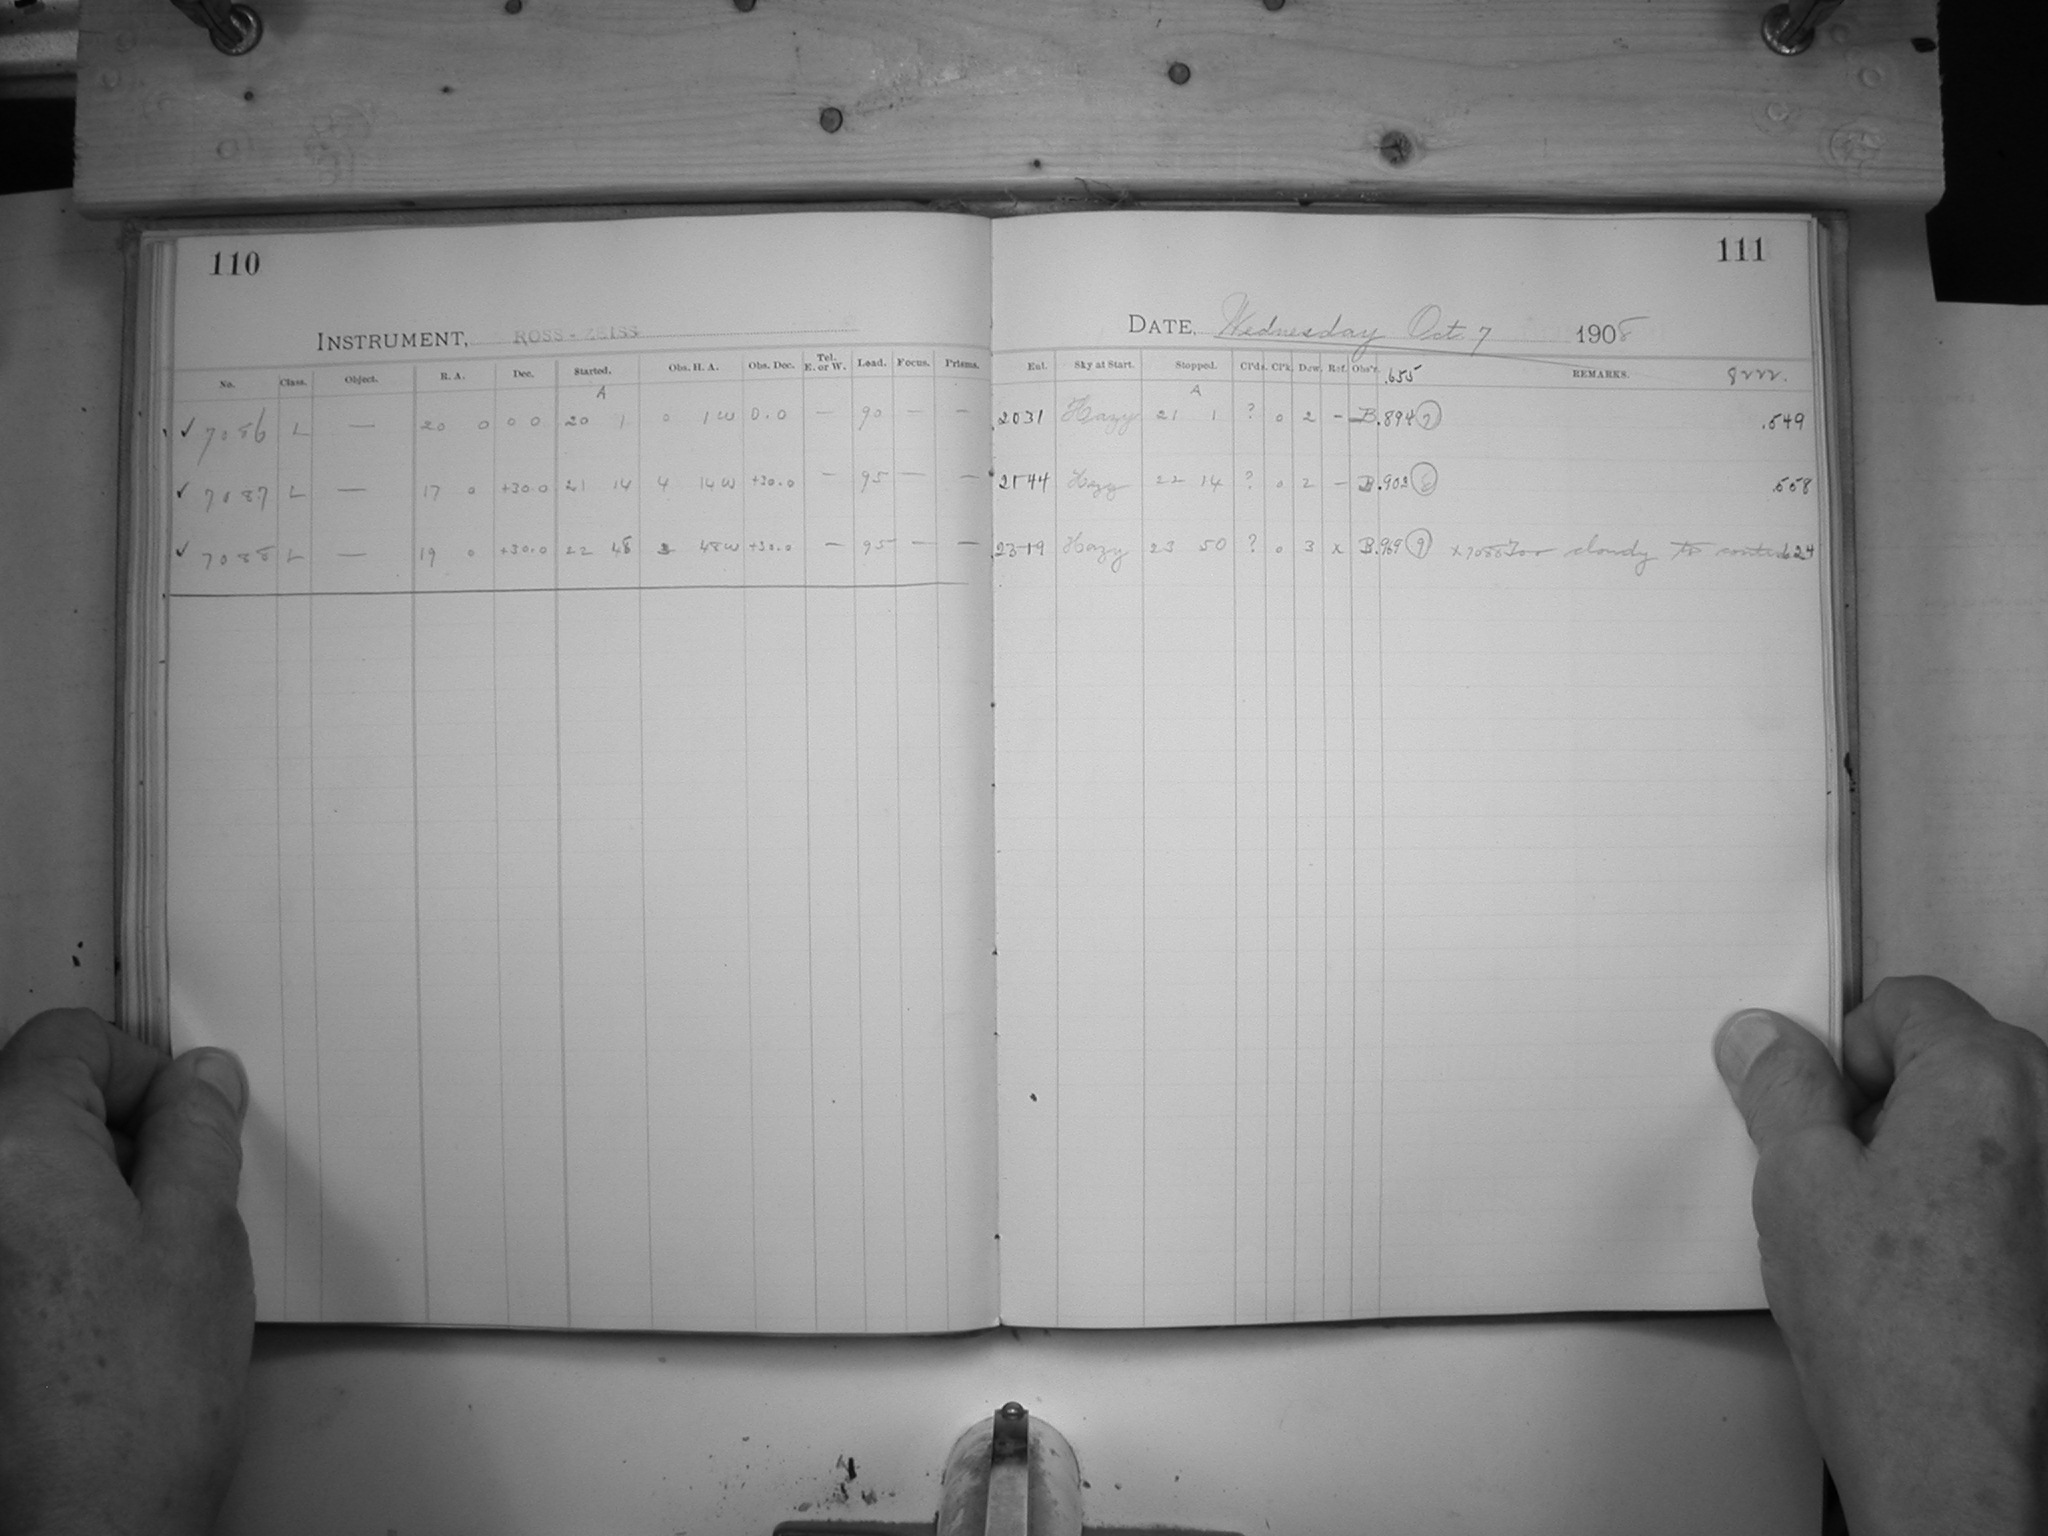 110
INSTRUMENT, ROSS-ZEISS
No. Class. Object. R. A. Dec. Started. Obs. H. A. Obs. Dec. Tel. E. or W. Load. Focus. Prisms.
A
✓ 7086 L — 20 0 0 0 0 20 1 0 1 W 0.0 — 90 — —
✓ 7087 L — 17 0 +30.0 21 14 4 14 W +30.0 — 95 — —
✓ 7088 L — 19 0 +30.0 22 48 3 48 W +30.0 — 95 — —
111
DATE, Wednesday Oct. 7 1908
Ent. Sky at Start. Stopped. Cl'ds. Cl'k. Dew. Ref. Obs'r. .655 REMARKS.
A
2031 Hazy 21 1 ? 0 2 - B .894 7 .549
2144 Hazy 22 14 ? 0 2 - B .903 8 .558
2319 Hazy 23 50 ? 0 3 x B .969 9 x7088 Too cloudy to 624